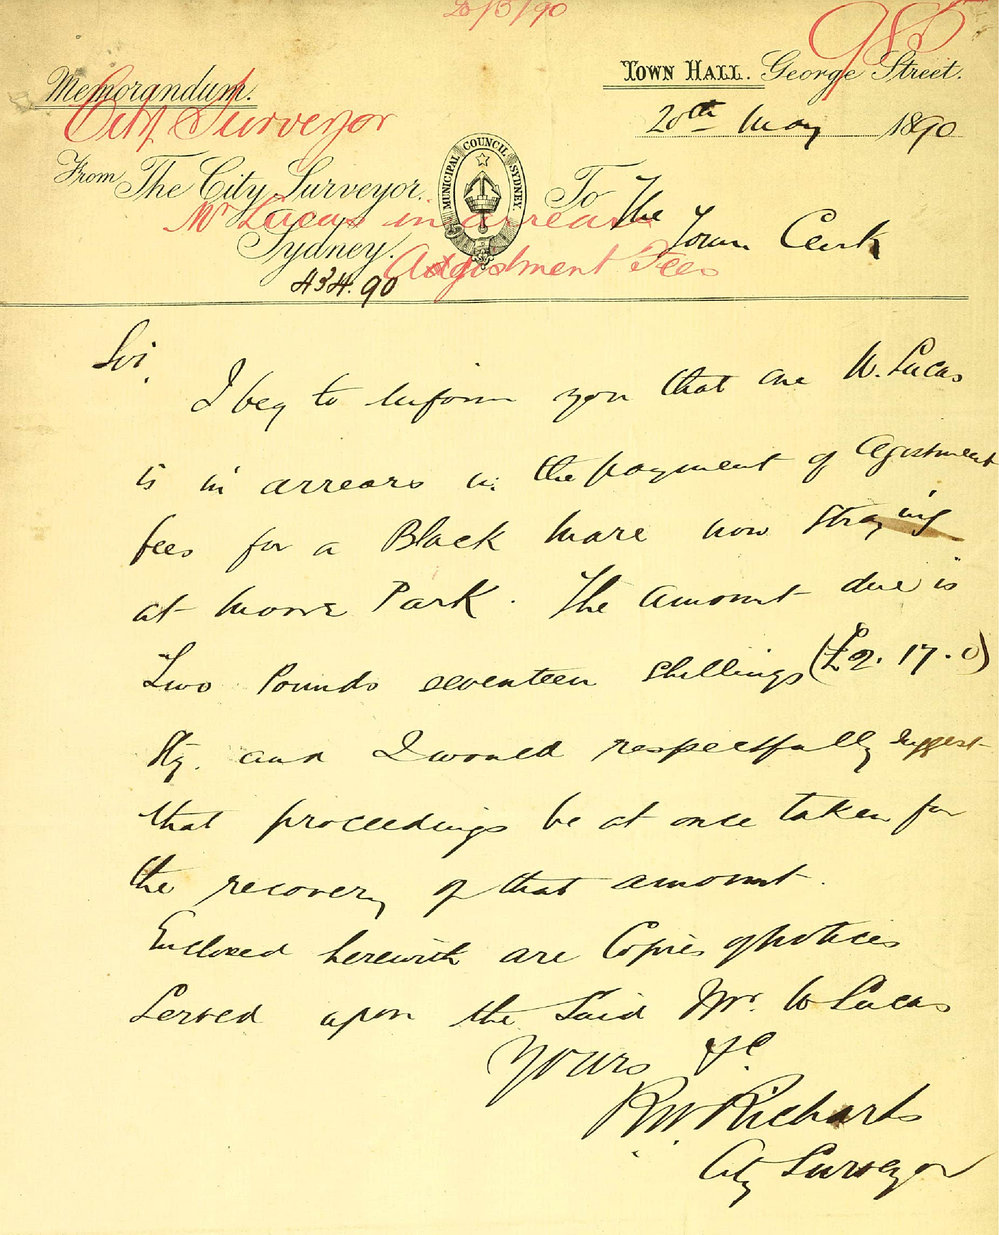 20/5/90
985
Memorandum.
TOWN HALL. George Street.
City Surveyor
20th May 1890
From The City Surveyor.
MUNICIPAL COUNCIL SYDNEY.
To The
Town Clerk
Mr Lucas in arrears
Sydney.
Adgistment Fees
434.90
Sir,
I beg to inform you that one W. Lucas
is in arrears in the payment of Agistment
fees for a Black Mare now straying
at Moore Park. The amount due is
Two Pounds seventeen shillings (£2.17.0)
Stg. and I would respectfully suggest
that proceedings be at once taken for
the recovery of that amount.
Enclosed herewith are Copies of notices
Served upon the Said Mr. W Lucas
Yours &c
RW Richards
City Surveyor